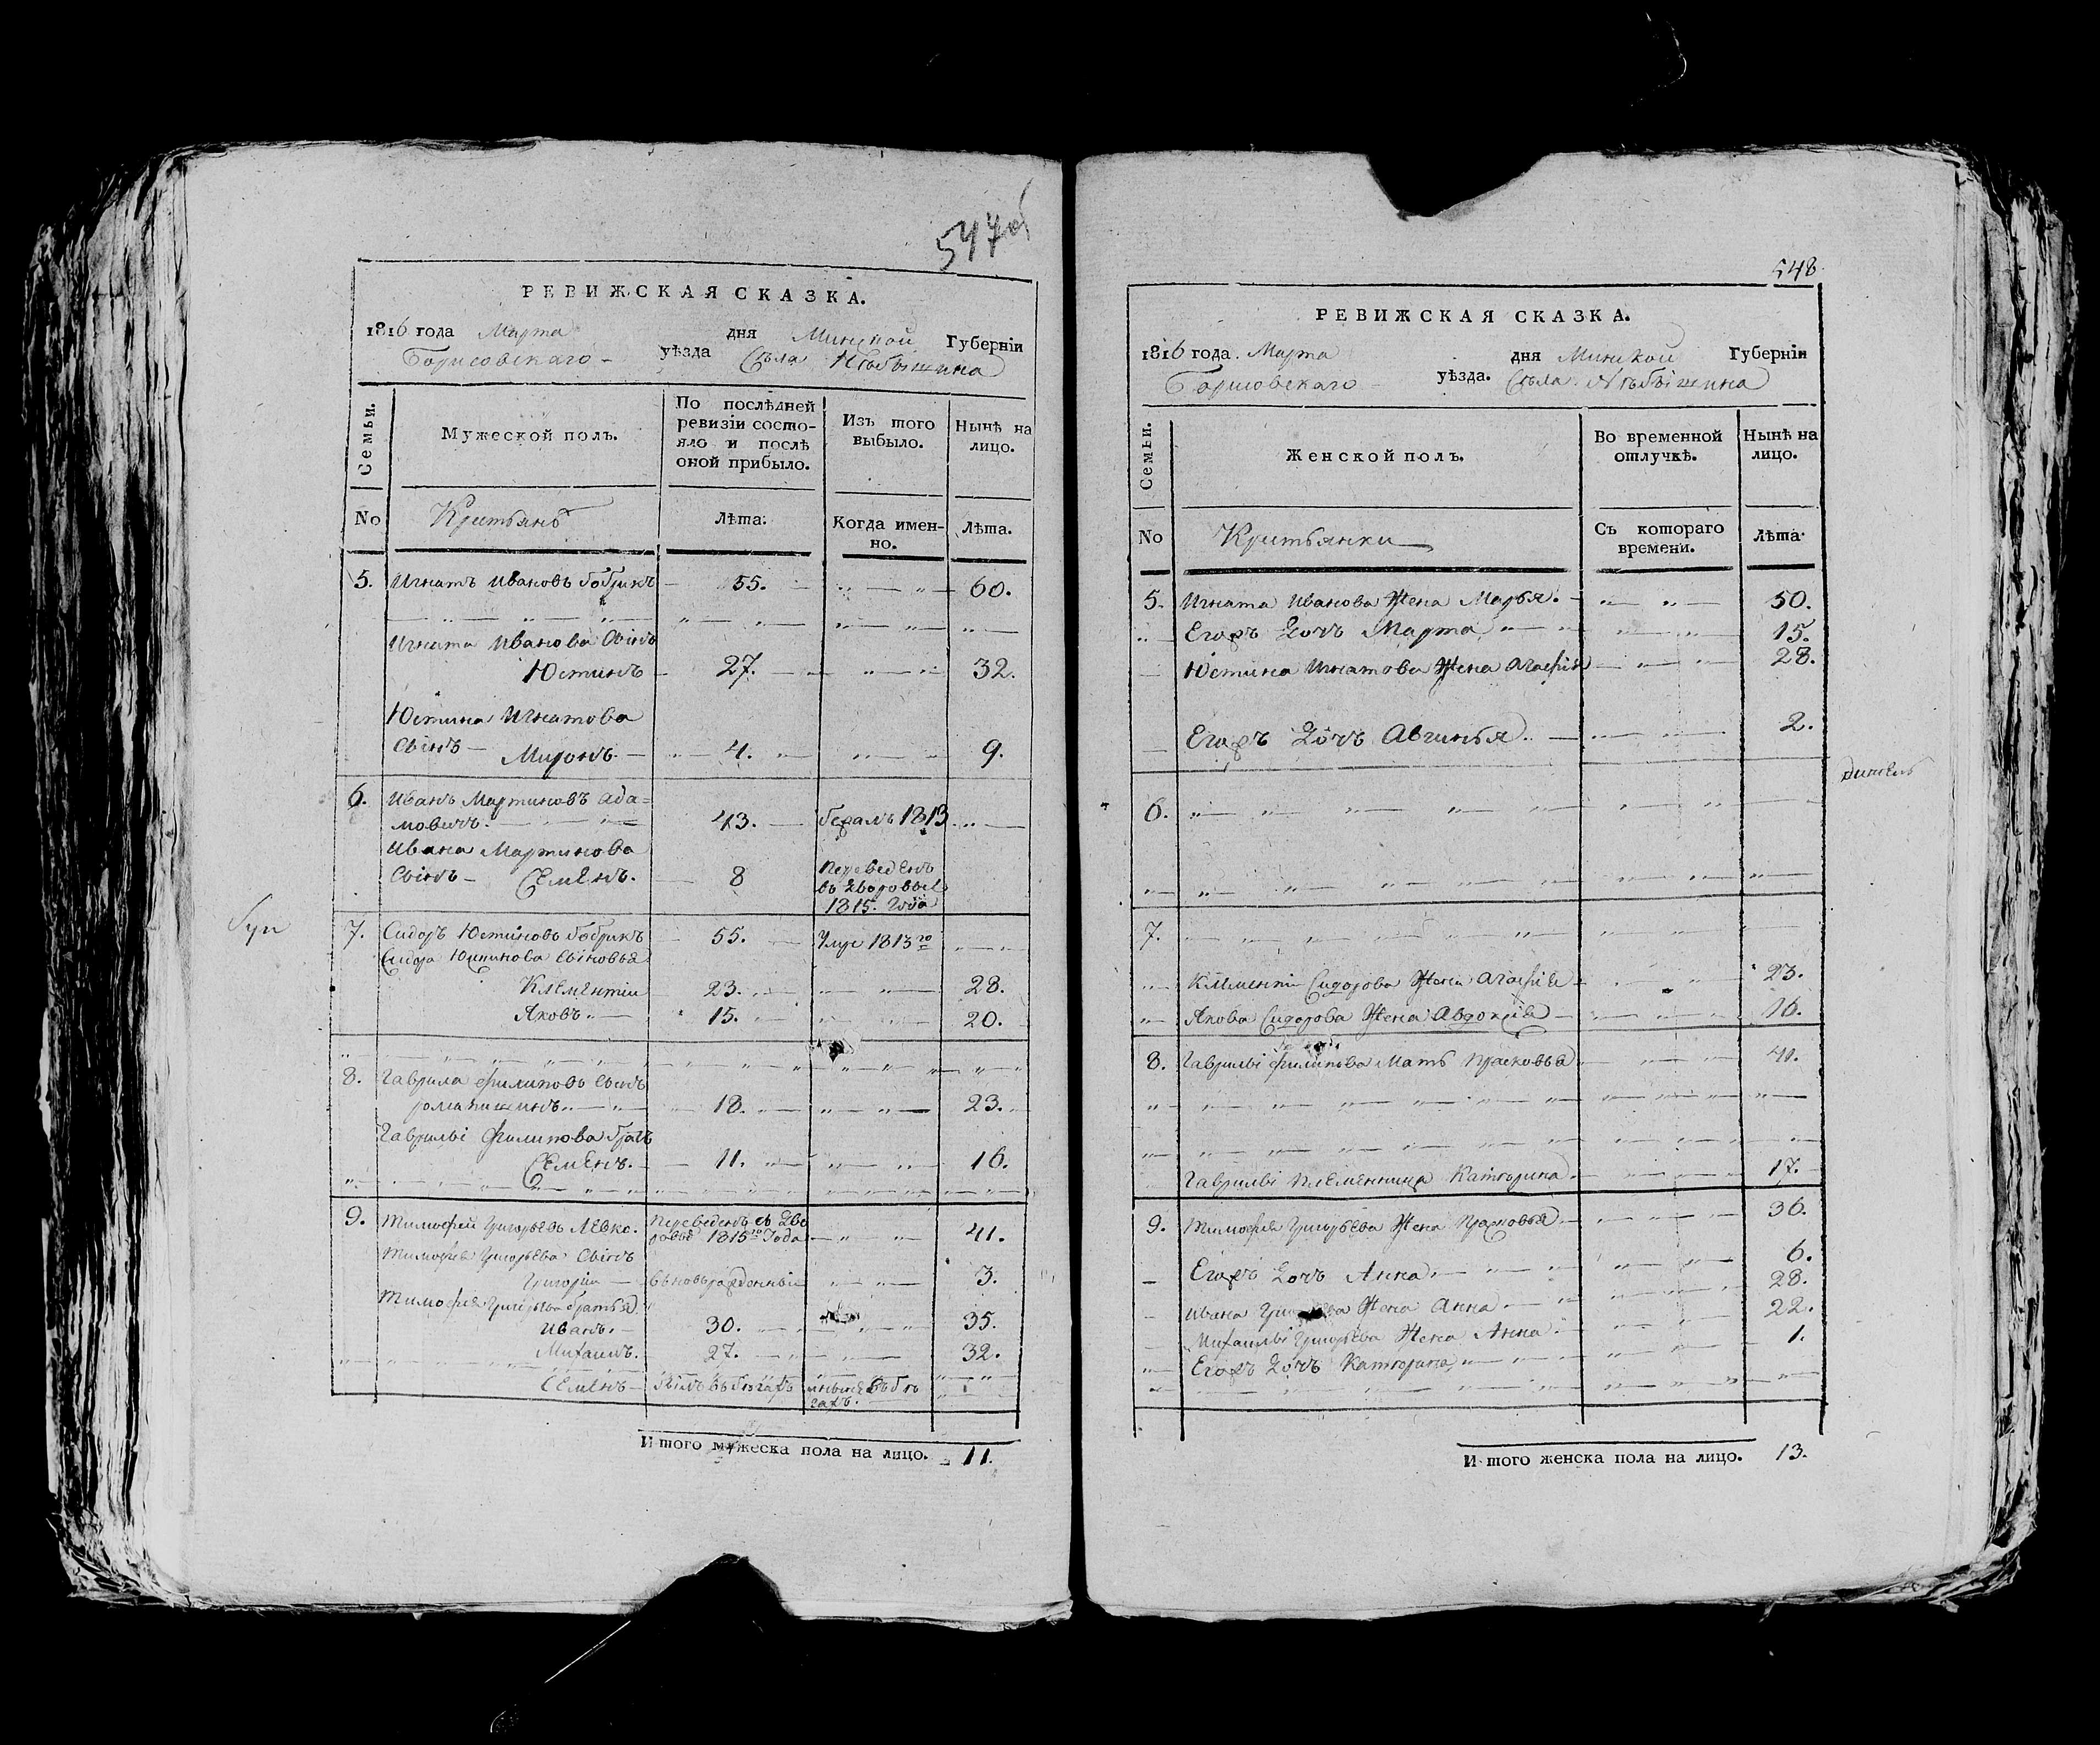 547об
РЕВИЖСКАЯ СКАЗКА.
1816 года Марта дня Минской Губерніи
Борисовскаго уѣзда Села
Семьи.
Мужеской полъ.
По послѣдней ревизіи состояло и послѣ оной прибыло.
Изъ того выбыло.
Нынѣ на лицо.
No
Лѣта.
Когда именно.
Лѣта.
5. Игнатъ Ивановъ Бобрикъ 55. 60.
Игната Иванова Сынъ
Юстинъ 27. 32.
Юстина Игнатова
Сынъ Миронъ. 4. 9.
6. Иванъ Мартиновъ Ада=
мовичъ. 43. 1813
Ивана Мартинова
Сынъ Семенъ. 8 Переведенъ
въ Дворовые
1815. Года
7. Сидоръ Юстиновъ Бобрикъ 55. Умре 1813го
Сидора Юстинова Сыновья
Клементіи 23. 28.
Яковъ. 15. 20.
8. Гаврила Филиповъ Сынъ
18. 23.
Гаврилы Филипова братъ
Семенъ. 11. 16.
9. Тимофей Григорьевъ Левко. Переведенъ съ Дво
ровыхъ 1815го Года 41.
Тимофея Григорьева Сынъ
Григоріи вновьрожденный 3.
Тимофея Григорьева братья
Иванъ. 30. 35.
Михаилъ. 27. 32.
Семенъ былъ въ бѣгахъ и нынѣ въ бѣ
гахъ.
Итого мужеска пола на лицо. 11.
548
РЕВИЖСКАЯ СКАЗКА.
1816 года. Марта дня Минской Губерніи
Борисовскаго уѣзда. Села
Семьи.
Женской полъ.
Во временной отлучкѣ.
Нынѣ на лицо.
No
Съ котораго времени.
Лѣта.
5. Игната Иванова Жена Марья. 50.
Егожъ Дочь Марта 15.
Юстина Игнатова Жена Агафія 28.
Егожъ Дочь Авгинья. 2.
6.
7.
Клементія Сидорова Жена Агафія 23.
Якова Сидорова Жена Авдокія 16.
8. Гаврилы Филипова Мать Прасковья 41.
Гаврилы Племенница Катерина. 17.
9. Тимофея Григорьева Жена Прасковья 36.
Егожъ Дочь Анна 6.
Ивана Григорьева Жена Анна 28.
Михаилы Григорьева Жена Анна. 22.
Егожъ Дочь Катерина 1.
Итого женска пола на лицо. 13.